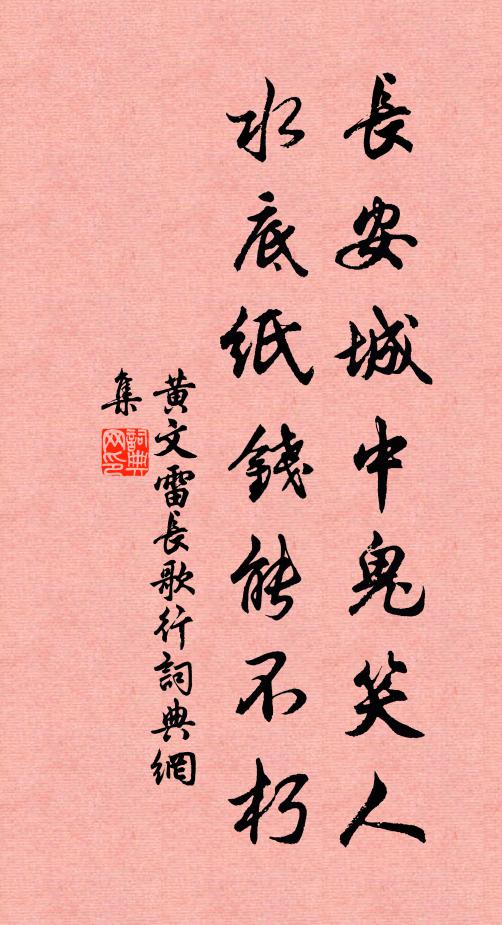 長安城中鬼笑人
水底紙錢能不朽
黃文雷長歌行詞典網
集
詞典
网印